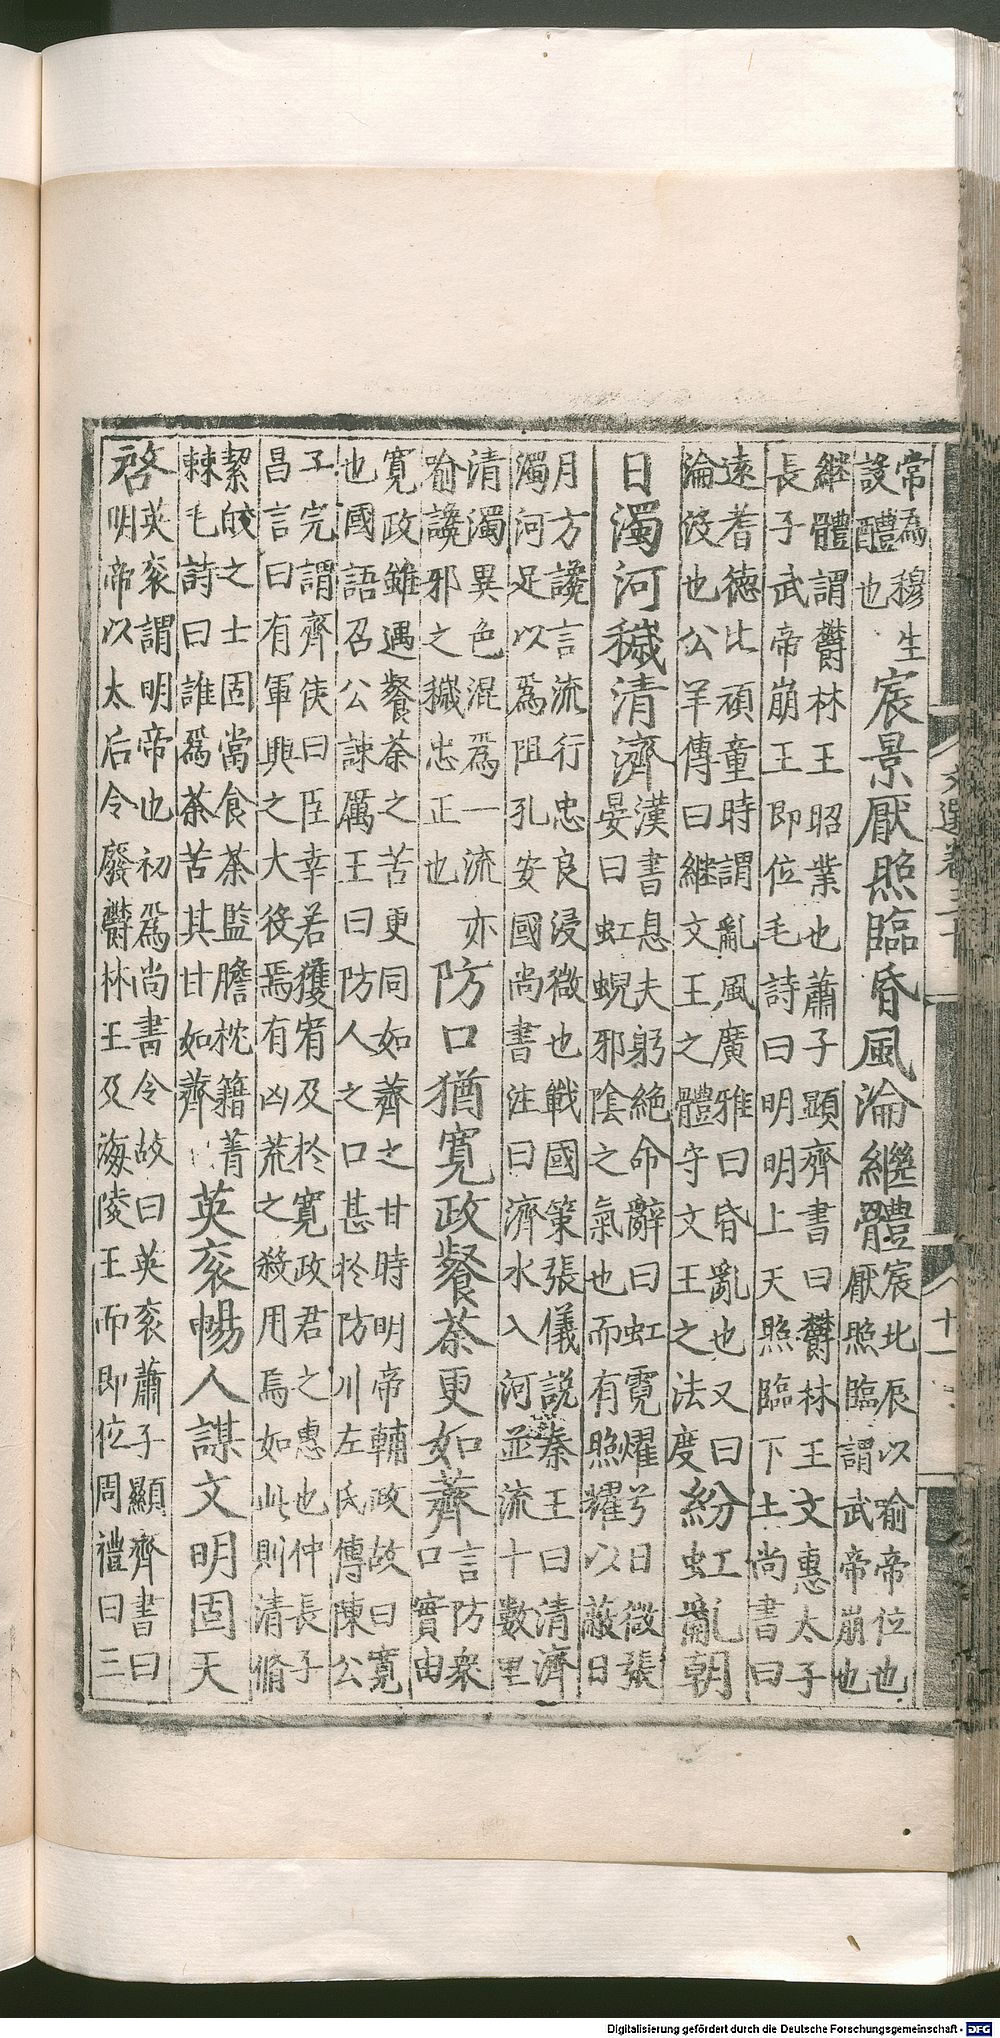 文選卷三十
十一
常為穆生
設醴也
宸景厭照臨昏風淪繼體
宸北辰以喻帝位也
厭照臨謂武帝崩也
繼體謂鬱林王昭業也蕭子顯齊書曰鬱林王文惠太子
長子武帝崩王即位毛詩曰明明上天照臨下土尚書曰
遠耆德比頑童時謂亂風廣雅曰昏亂也又曰
淪没也公羊傳曰繼文王之體守文王之法度
紛虹亂朝
日濁河穢清濟
漢書息夫躬絶命辭曰虹霓燿兮日微張
晏曰虹蜺邪陰之氣也而有照耀以蔽日
月方讒言流行忠良浸微也戰國策張儀説秦王曰清濟
濁河足以為阻孔安國尚書注曰濟水入河並流十數里
清濁異色混為一流亦
喻讒邪之穢忠正也
防口猶寛政餐荼更如薺
言防衆
口實由
寛政雖遇餐荼之苦更同如薺之甘時明帝輔政故曰寛
也國語召公諫厲王曰防人之口甚於防川左氏傳陳公
子完謂齊侯曰臣幸若獲宥及於寛政君之惠也仲長子
昌言曰有軍興之大役焉有凶荒之殺用焉如此則清脩
絜皎之士固當食荼監膽枕籍菁
棘毛詩曰誰為荼苦其甘如薺
英衮暢人謀文明固天
啓
英衮謂明帝也初為尚書令故曰英衮蕭子顯齊書曰
明帝以太后令廢鬱林王及海陵王而即位周禮曰三
Digitalisierung gefördert durch die Deutsche Forschungsgemeinschaft - DFG